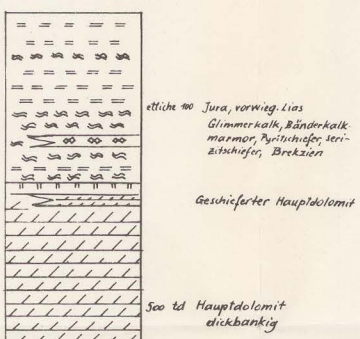 etliche 100 Jura, vorwieg. Lias
Glimmerkalk, Bänderkalk-
marmor, Pyritschiefer, seri-
zitschiefer, Brekzien
Geschieferter Hauptdolomit
500 td Hauptdolomit
dickbankig